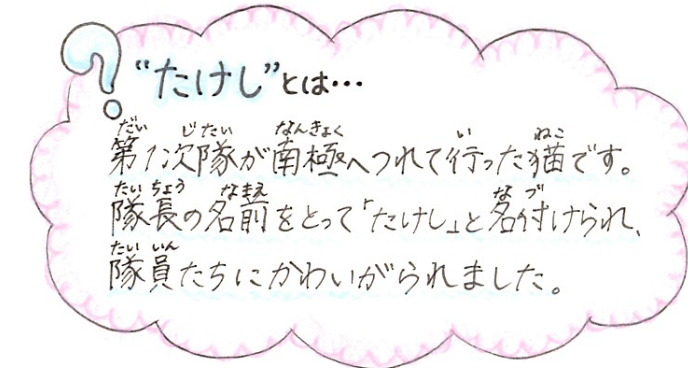 ? “たけし”とは…
第1次隊が南極へつれて行った猫です。
隊長の名前をとって「たけし」と名付けられ、
隊員たちにかわいがられました。